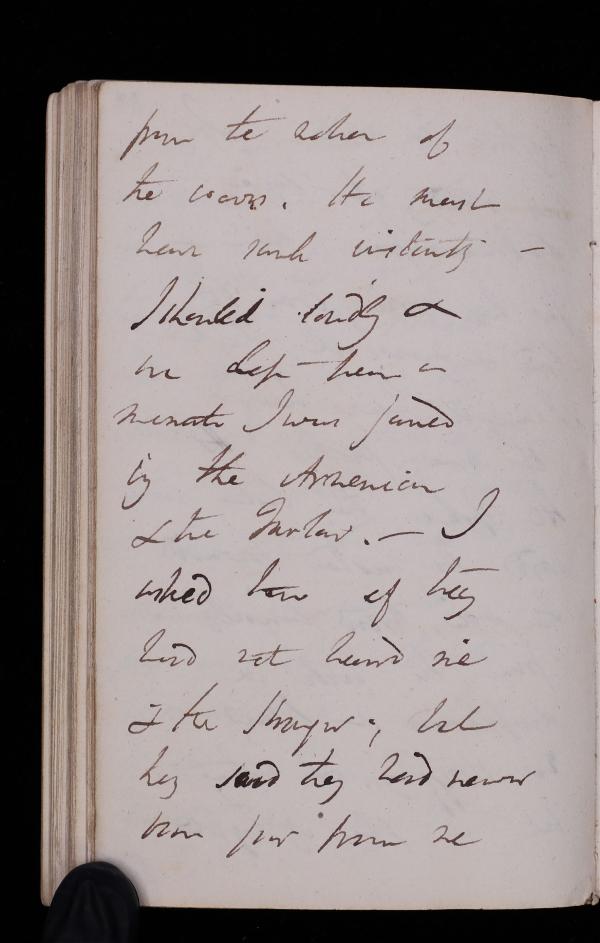 from the echer of
the waves. He must
have sunk instantly —
I shouted loudly &
in less than a
minute I was joined
by the Armenian
& the Tartar. — I
asked them if they
had not heard me
& the Stranger; but
they said they had never
been far from me